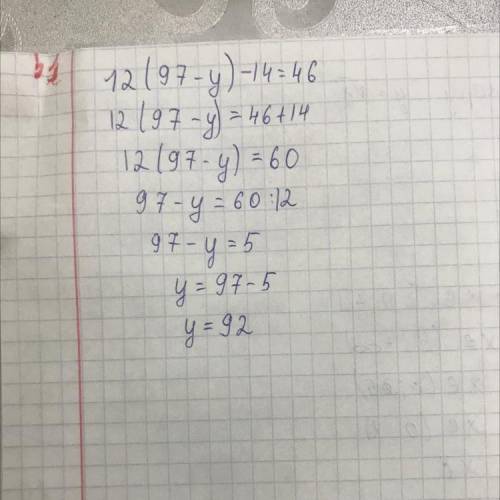 12(97-y)-14=46
12(97-y)=46+14
12(97-y)=60
97-y=60:12
97-y=5
y=97-5
y=92